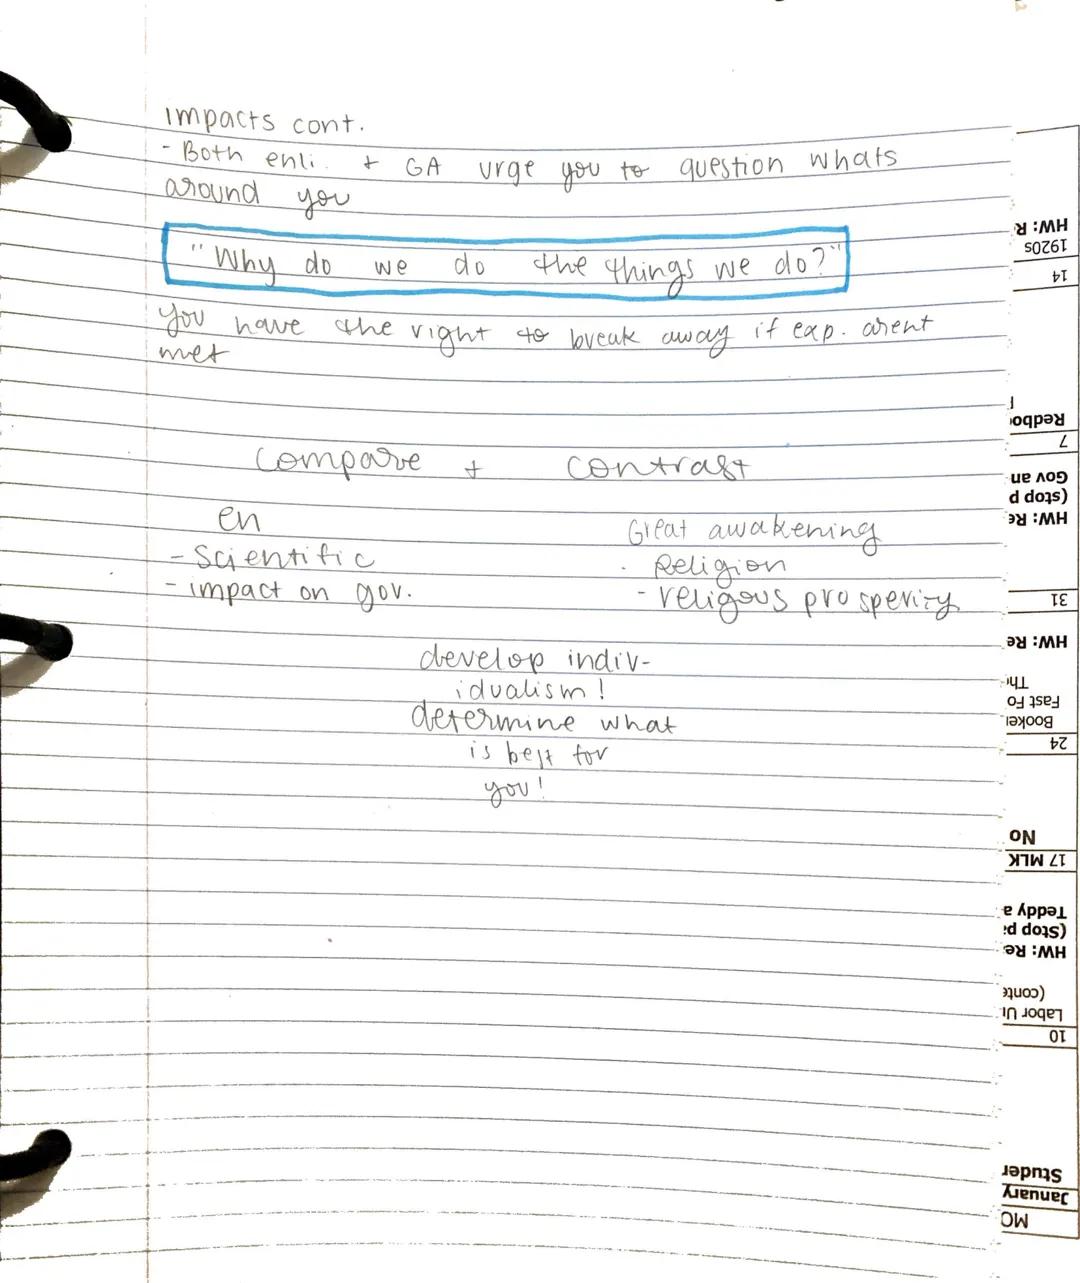 impacts cont.
- Both enli. + GA urge you to question whats
around you
"Why do we do the things we do?"
you have the right to break away if exp. arent
met
compare + contrast
en
- Scientific
- impact on gov.
Great awakening
- Religion
- religous prosperity
develop indiv-
idualism!
determine what
is best for
you!
HW: R
1920s
14
Redboo
7
Gov an
(stop p
HW: Re
31
HW: Re
Th
Fast Fo
Booker
24
No
17 MLK
Teddy a
(Stop pa
HW: Re
(conte
Labor Un
10
Studen
January
MO